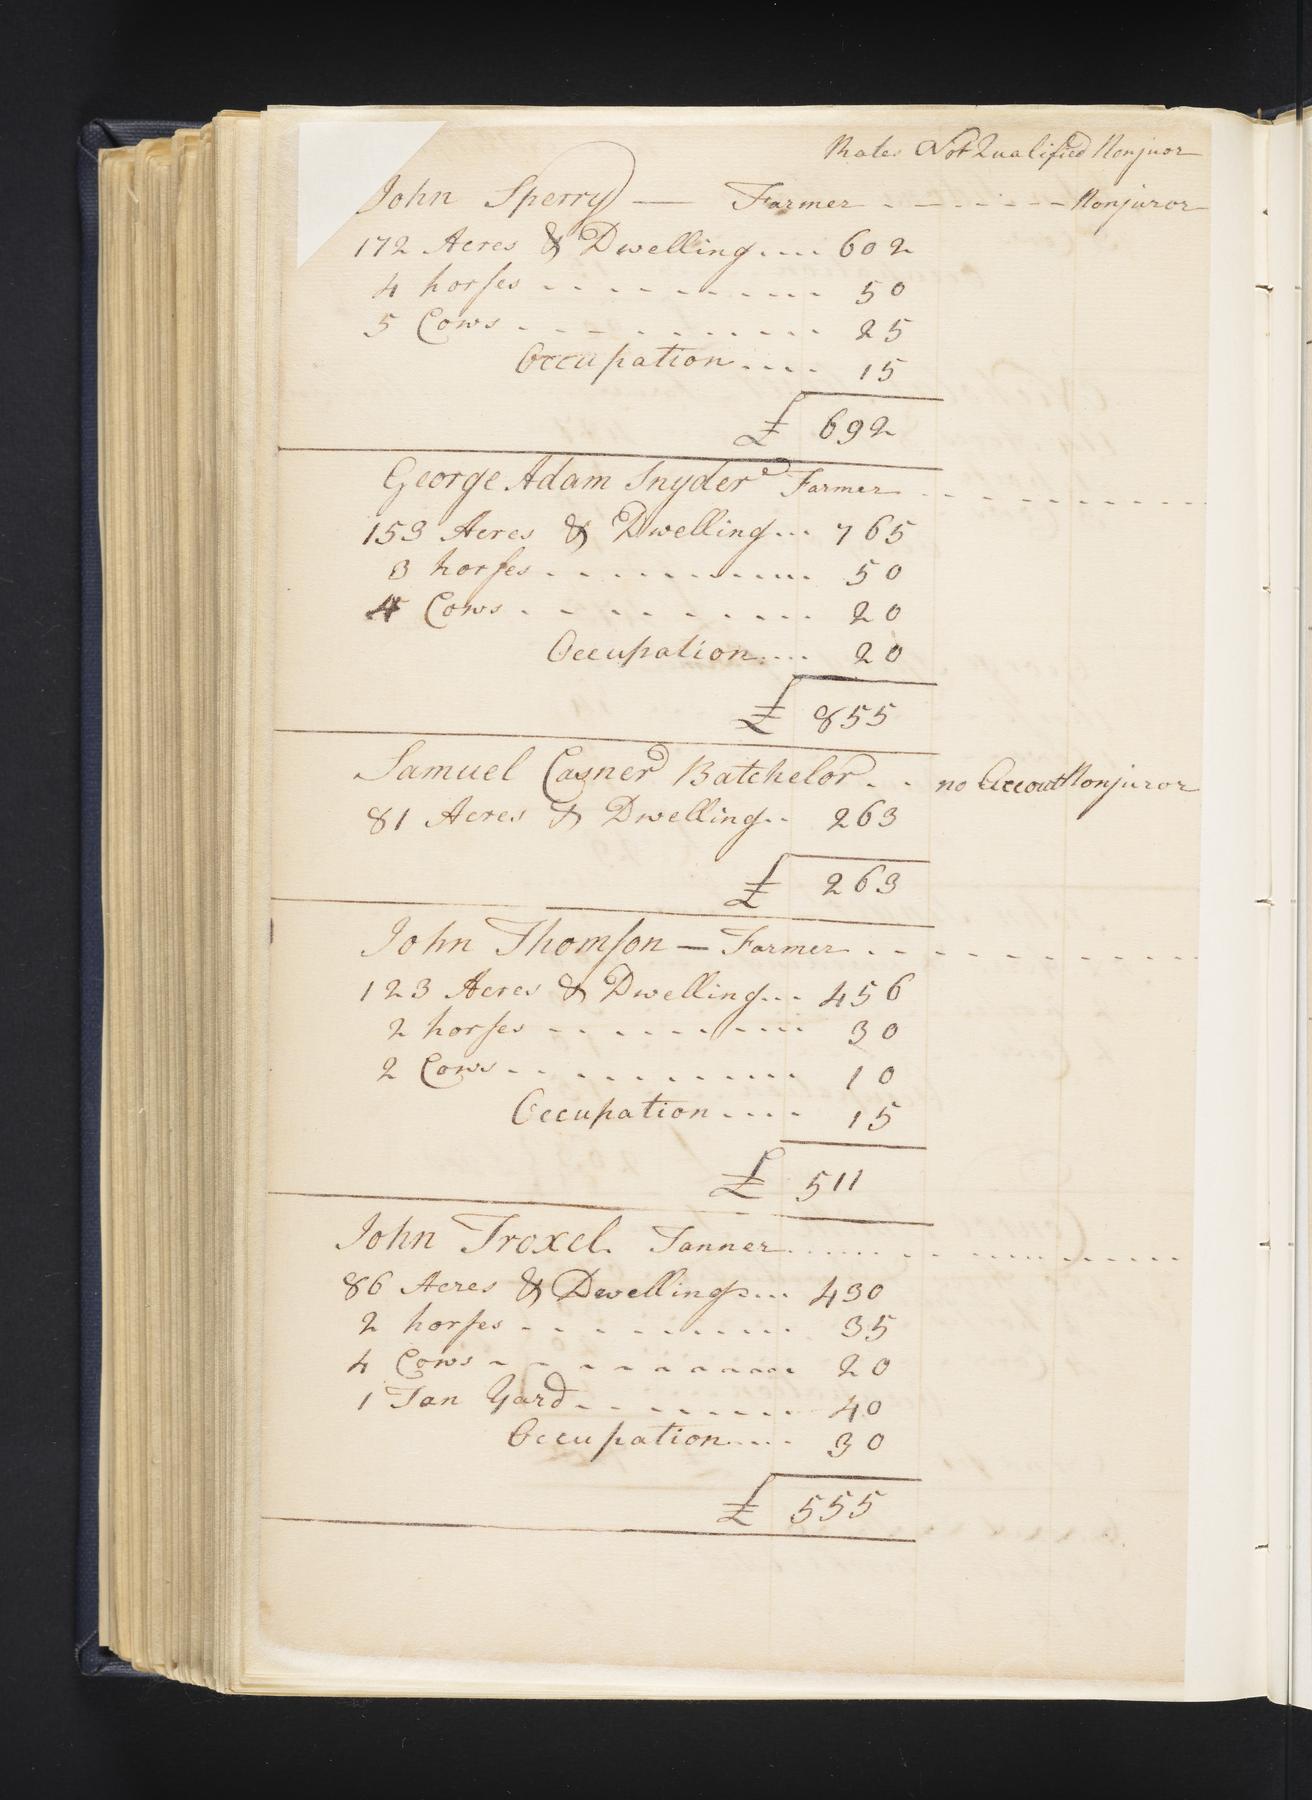 Rates Not Qualified Nonjuor
John Sperry — Farmer - - - - - - - Nonjuror
172 Acres & Dwelling.... 602
4 horses - - - - - - - - - - - 50
5 Cows - - - - - - - - - - - 25
Occupation.... 15
£ 692
George Adam Snyder Farmer - - - - - - - - - -
153 Acres & Dwelling... 765
3 horses - - - - - - - - - - - 50
4 Cows - - - - - - - - - 20
Occupation.... 20
£ 855
Samuel Casner Batchelor - - no Accout Nonjuror
81 Acres & Dwelling.. 263
£ 263
John Thomson — Farmer - - - - - - - - - -
123 Acres & Dwelling... 456
2 horses - - - - - - - - - - 30
2 Cows - - - - - - - - - - - 10
Occupation.... 15
£ 511
John Troxel. Tanner - - - - - - - - - - - -
86 Acres & Dwellings... 430
2 horses - - - - - - - - - 35
4 Cows - - - - - - - - - - - 20
1 Tan Yard - - - - - - - - 40
Occupation.... 30
£ 555